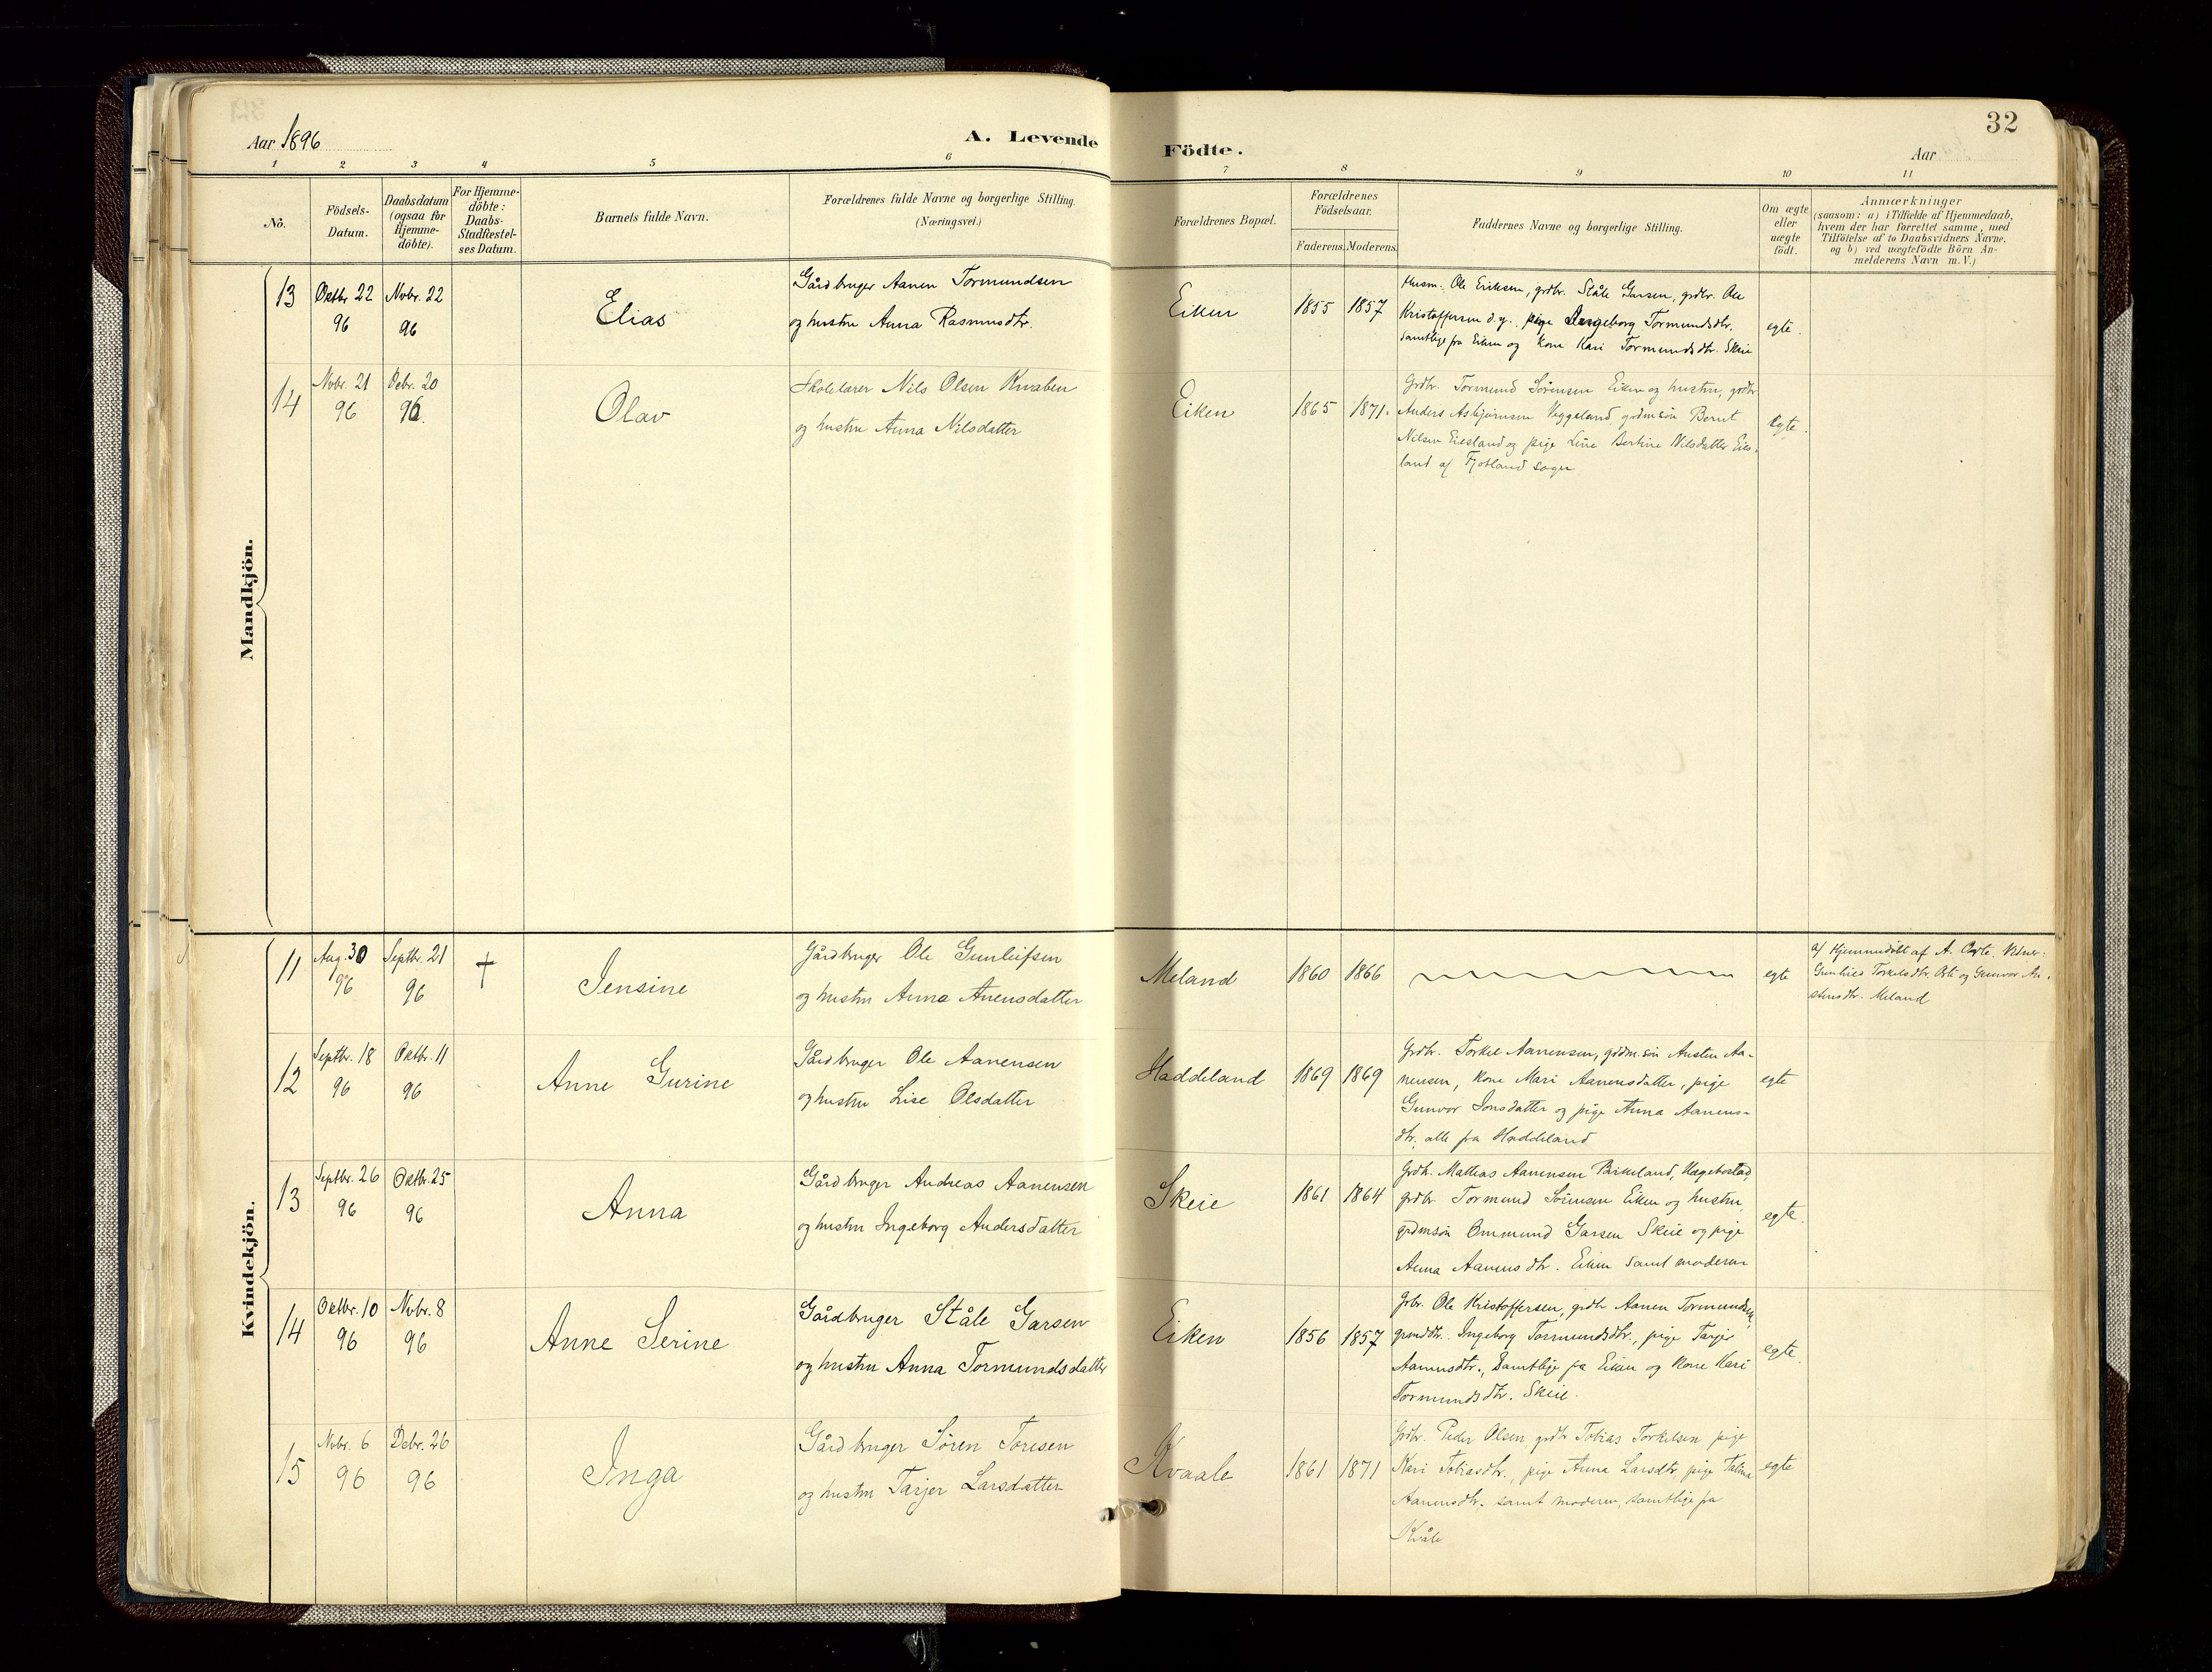 32
Aar 1896
A. Levende
Födte.
Aar
1
2
3
4
5
6
7
8
9
10
11
No.
Födsels-
Datum.
Daabsdatum
(ogsaa for
Hjemme-
döbte).
For Hjemme-
döbte:
Daabs-
Stadfæstel-
ses Datum.
Barnets fulde Navn.
Forældrenes fulde Navne og borgerlige Stilling.
(Næringsvei.)
Forældrenes Bopæl.
Forældrenes
Födselsaar.
Faderens.
Moderens.
Faddernes Navne og borgerlige Stilling.
Om ægte
eller
uægte
födt.
Anmærkninger
(saasom: a) i Tilfælde af Hjemmedaab,
hvem der har forrettet samme, med
Tilföielse af to Daabsvidners Navne,
og b) ved uægtefödte Börn An-
melderens Navn m. V.)
Mandkjön.
13
Oktbr 22
96
Novbr. 22
96
Elias
Gårdbruger Aanen Tormundsen
og hustru Anna Rasmusdtr.
Eiken
1855
1857
Husm. Ole Eriksen, grdbr. Ståle Garsen, grdbr. Ole
Kristoffersen d.y., pige Ingeborg Tormundsdtr.
samtlige fra Eiken og kone Kari Tormundsdtr. Skeie
egte.
14
Novbr. 21
96
Debr. 20
96.
Olav
Skolelærer Nils Olsen Knaben
og hustru Anna Nilsdatter
Eiken
1865
1871.
Grdbr. Tormund Sørensen Eiken og hustru, grdbr
Anders Asbjørnsen Veggeland, grdmsøn Bernt
Nilsen Eiesland og pige Line Bertine Nilsdatter Eies-
land af Fjotland sogn
egte.
Kvindekjön.
11
Aug. 30
96
Septbr. 21
96
†
Jensine
Gårdbruger Ole Gunleifsen
og hustru Anna Anensdatter
Meland
1860
1866
egte
a/ Hjemmedøbt af A. Vidner:
Torkelsdtr. og Gunvor
Meland
12
Septbr. 18
96
Oktbr. 11
96
Anne Gurine
Gårdbruger Ole Aanensen
og hustru Lise Olsdatter
Haddeland
1869
1869
Grdbr. Torkel Aanensen, grdm.søn Austen Aa-
nensen, kone Mari Aanensdatter, pige
Gunvor Jonsdatter og pige Anna Aanens-
dtr. alle fra Haddeland
egte
13
Septbr. 26
96
Oktbr. 25
96
Anna
Gårdbruger Andreas Aanensen
og hustru Ingeborg Andersdatter
Skeie
1861
1864
Grdb. Mathias Aanensen Birkeland, Hægebostad,
grdbr Tormund Sørensen Eiken og hustru,
grdmsøn Ommund Garsen Skeie og pige
Anna Aanensdtr. Eiken samt moderen
egte.
14
Oktbr. 10
96
Novbr. 8
96
Anne Serine
Gårdbruger Ståle Garsen
og hustru Anna Tormundsdatter
Eiken
1856
1857
Grbr. Ole Kristoffersen, grdbr Aanen Tormundsen,
grmddtr. Ingeborg Tormundsdtr., pige Tarjer
Aanensdtr., Samtlige fra Eiken og kone Kari
Tormundsdtr. Skeie.
egte.
15
Novbr. 6
96
Debr. 26
96
Inga
Gårdbruger Søren Toresen
og hustru Tarjer Larsdatter
Kvaale
1861
1871
Grdbr. Peder Olsen grdbr Tobias Torkelsen pige
Kari Tobiasdtr., pige Anna Larsdtr, pige Talina
Aanensdtr. samt moderen, samtlige fra
Kvåle
egte